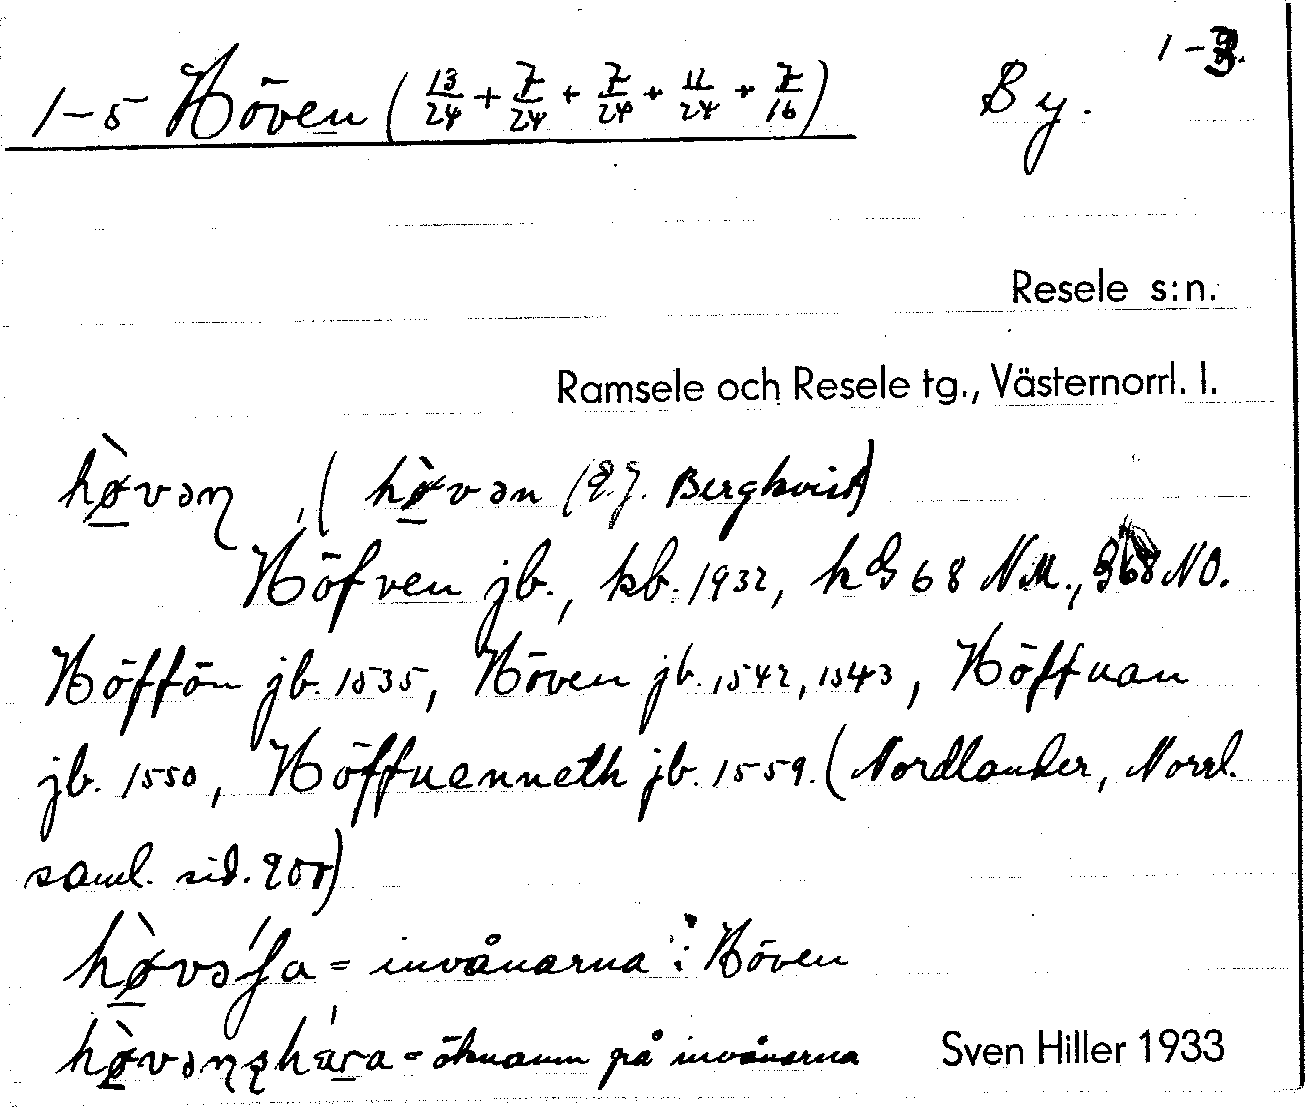 1-3.
1-5 Höven (13/24 + 7/24 + 7/24 + 11/24 + 7/16) By.
Resele s:n.
Ramsele och Resele tg., Västernorrl. l.
hø̀vəɳ, (hø̀vən (E.J. Bergkvist)
Höfven jb., kb. 1932, hG 68 NM., G68 NO.
Höffön jb. 1535, Höven jb. 1542, 1543, Höffuan
jb. 1550, Höffuenneth jb. 1559. (Nordlander, Norrl.
saml. sid.
= invånarna i Höven
= öknamn på invånarna
Sven Hiller 1933